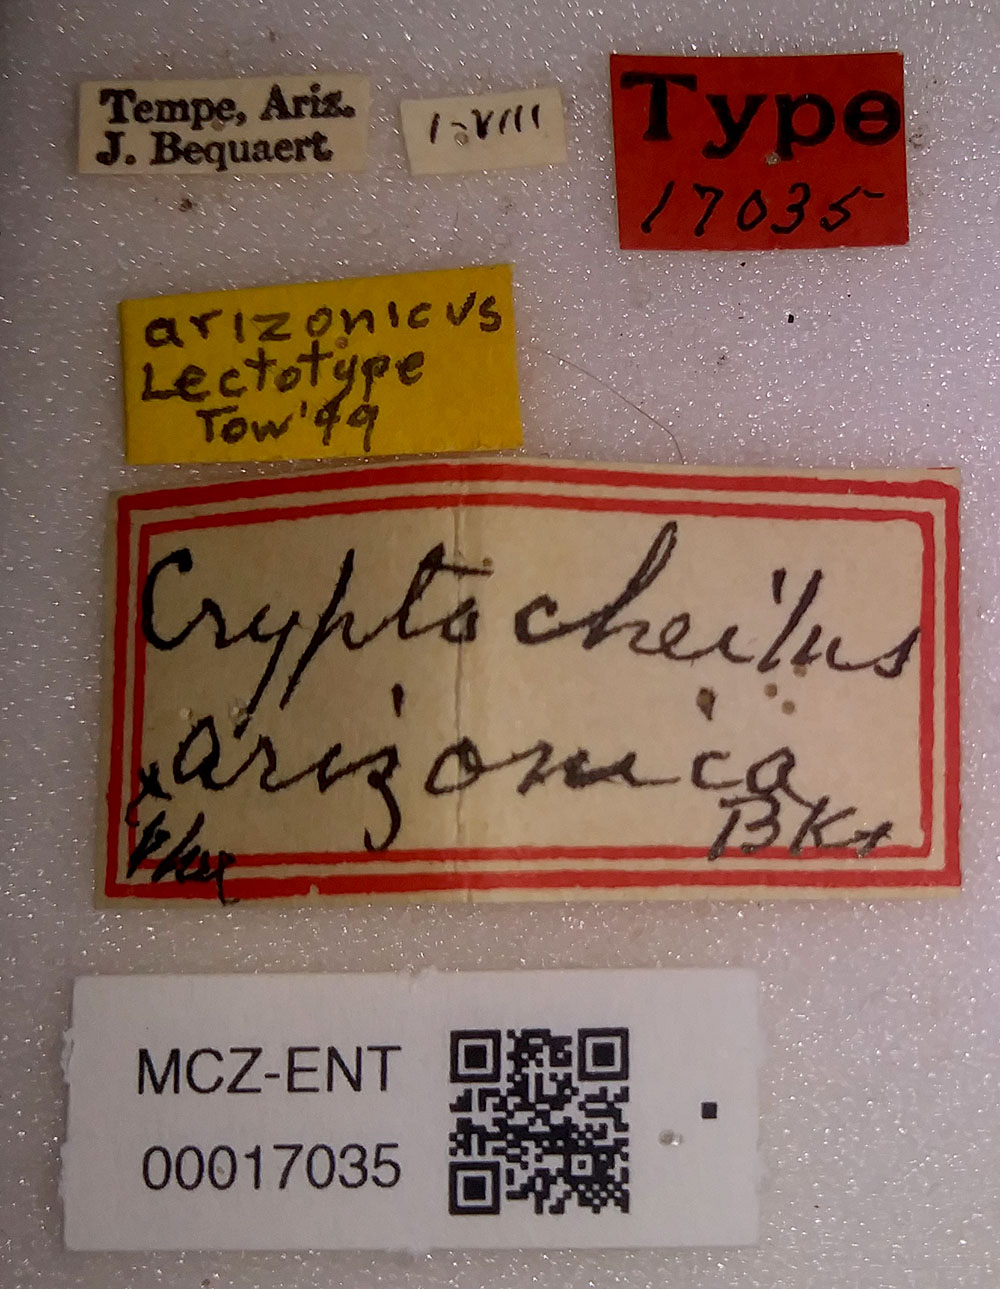 Tempe, Ariz.
J. Bequaert
1-VIII
Type
17035
arizonicus
Lectotype
Tow '49
Cryptocheilus
arizonica
Bks
MCZ-ENT
00017035